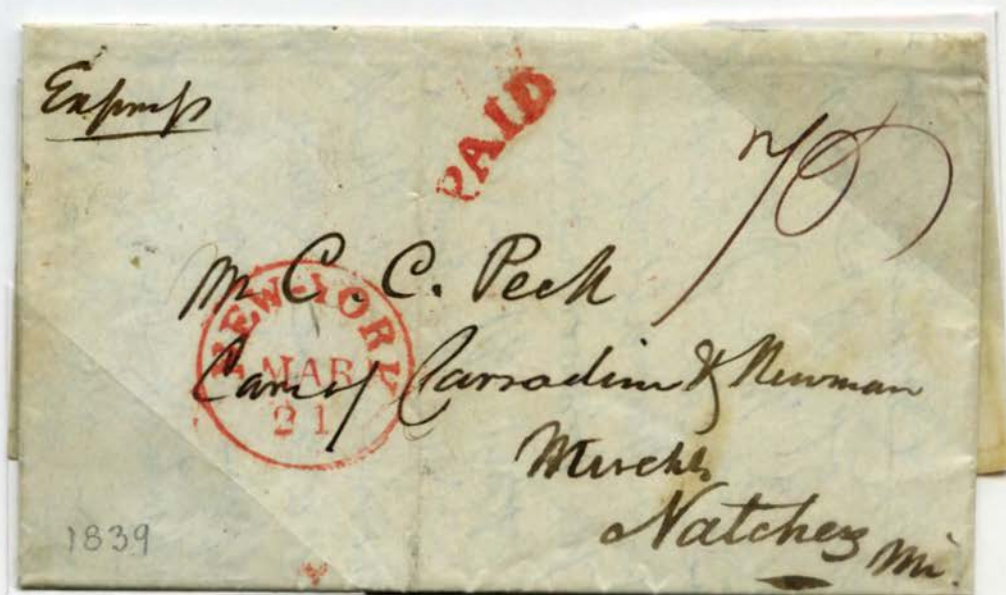 Express
PAID
70
Mr C. C. Peck
NEW-YORK
MAR
21
Care of Carradine & Newman
Merchts
Natchez Mi.
1839